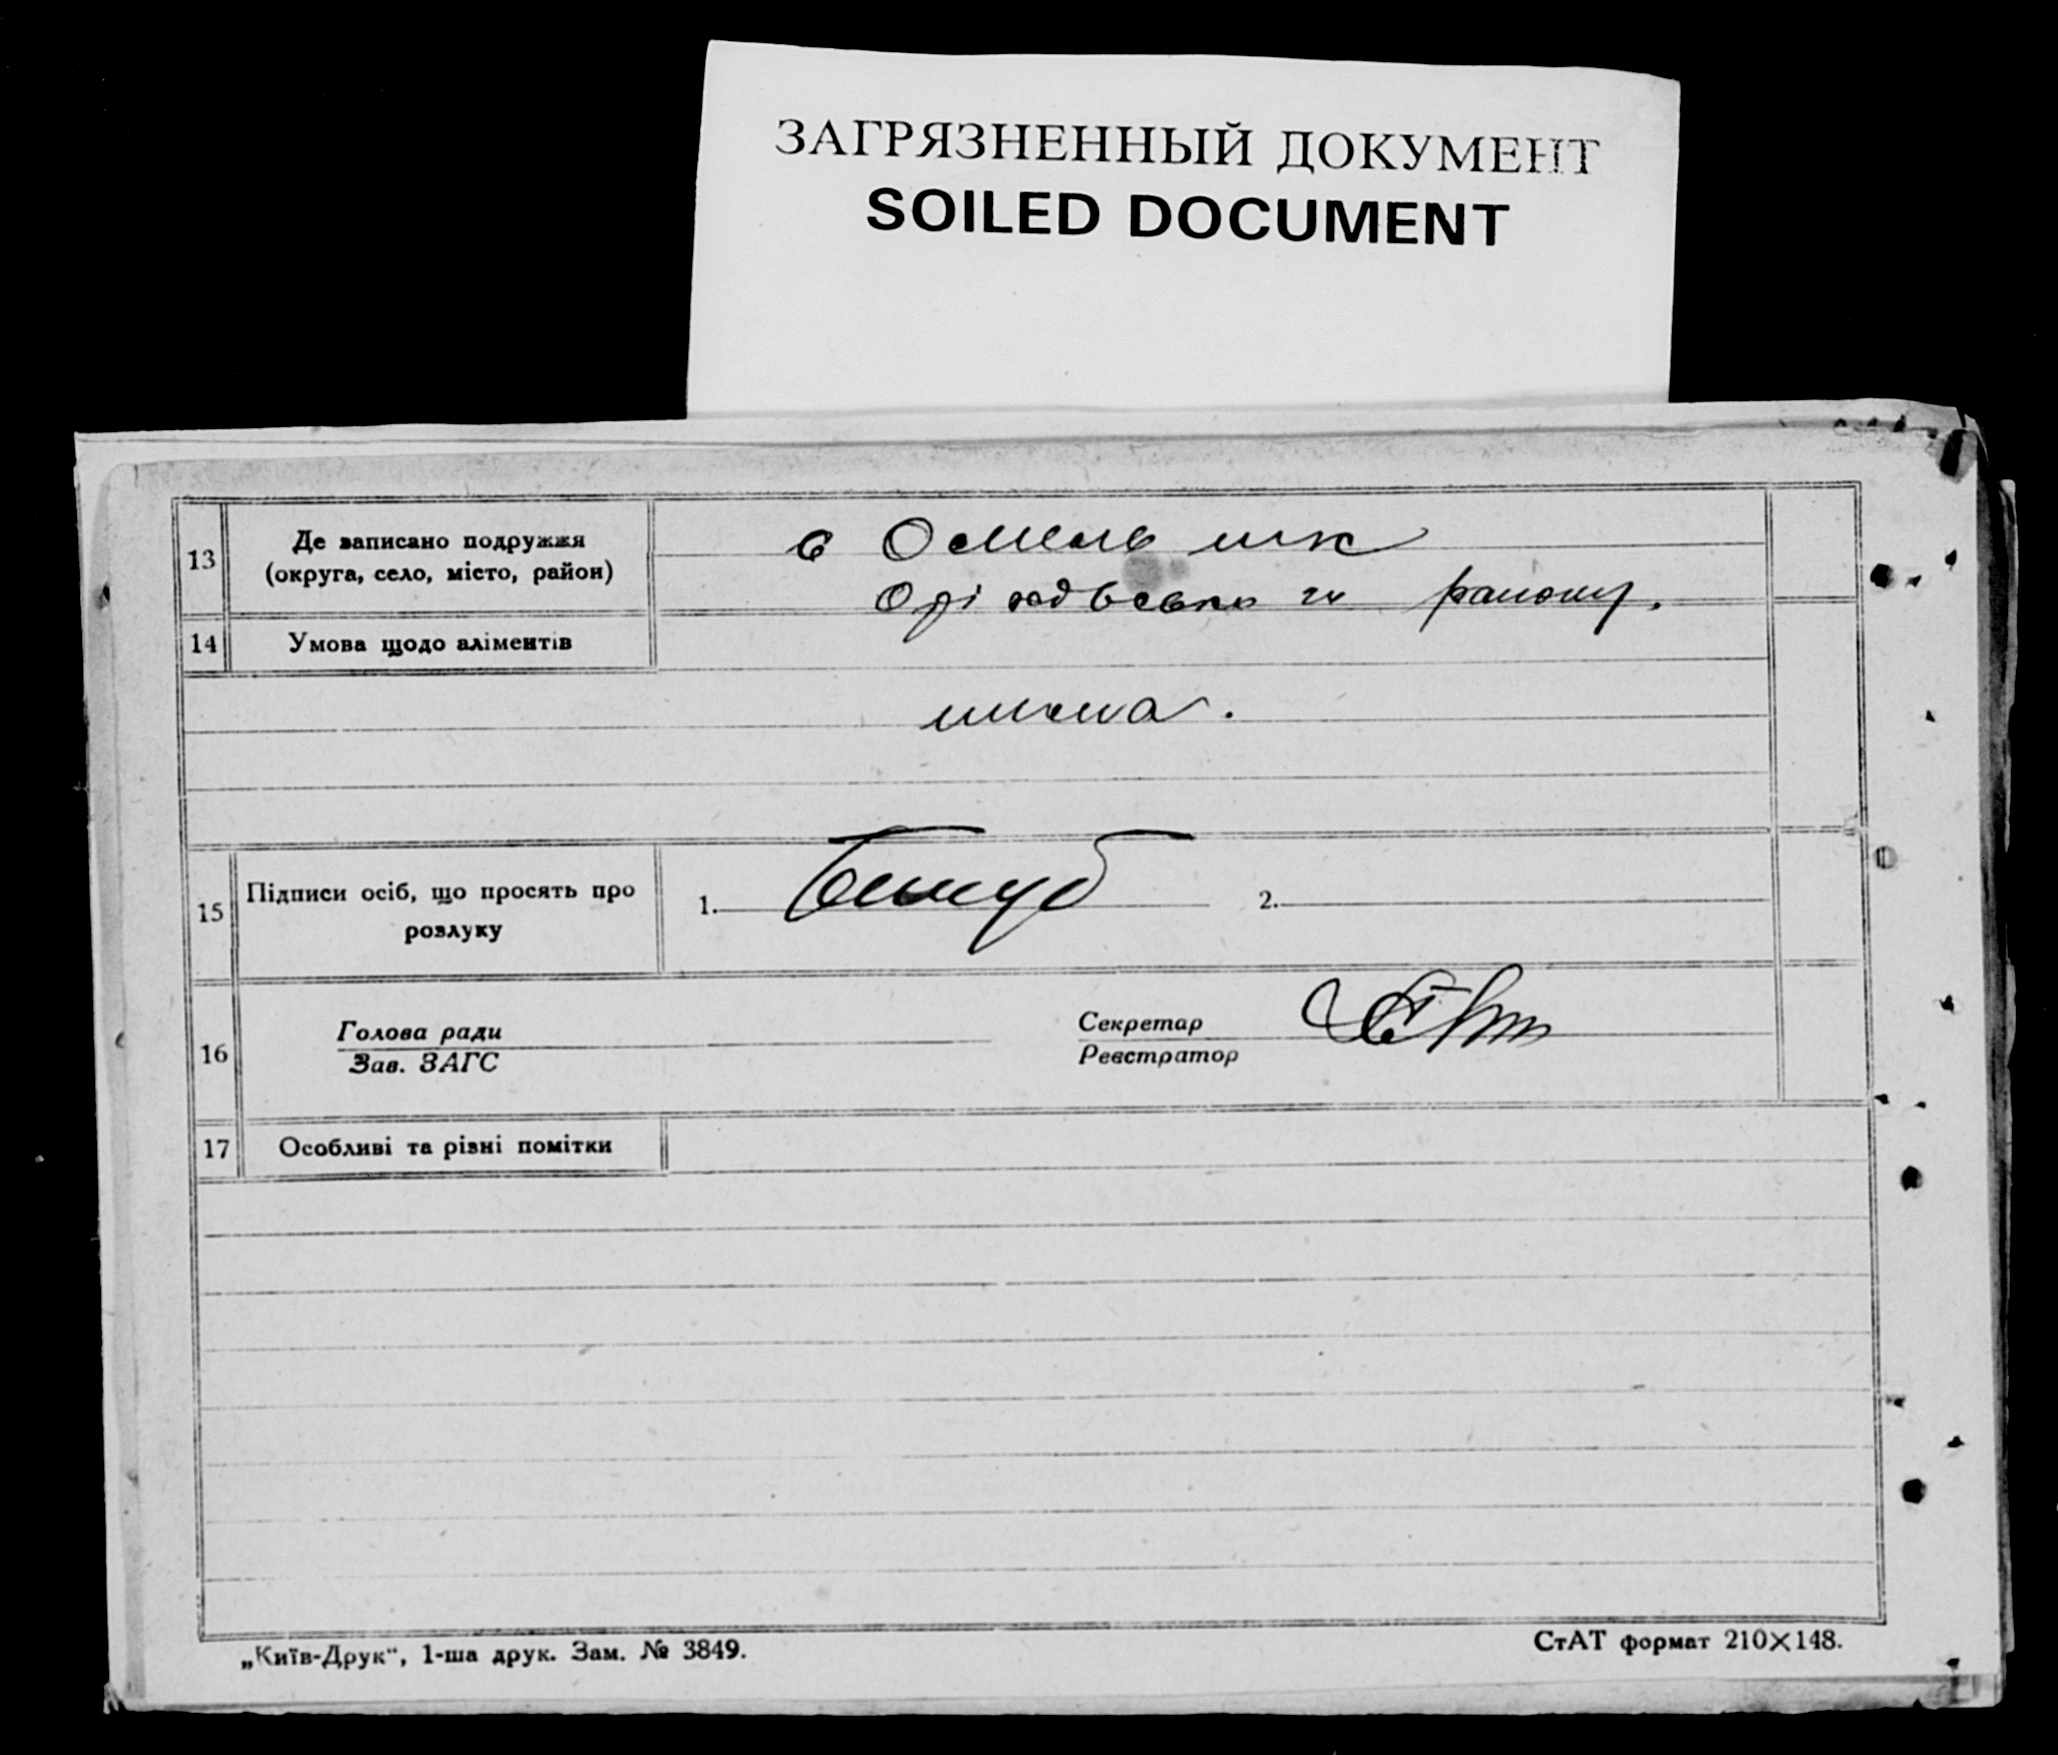 ЗАГРЯЗНЕННЫЙ ДОКУМЕНТ
SOILED DOCUMENT
13
Де записано подружжя
(округа, село, місто, район)
в Омельник
району.
14
Умова щодо аліментів
15
Підписи осіб, що просять про
розлуку
1.
2.
16
Голова ради
Зав. ЗАГС
Секретар
Реєстратор
17
Особливі та різні помітки
„Київ-Друк“, 1-ша друк. Зам. № 3849.
СтАТ формат 210×148.